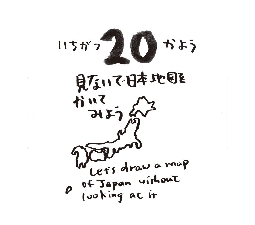 いちがつ 20 かよう
見ないで日本地図を
かいて
みよう
Let's draw a map
of Japan without
looking at it